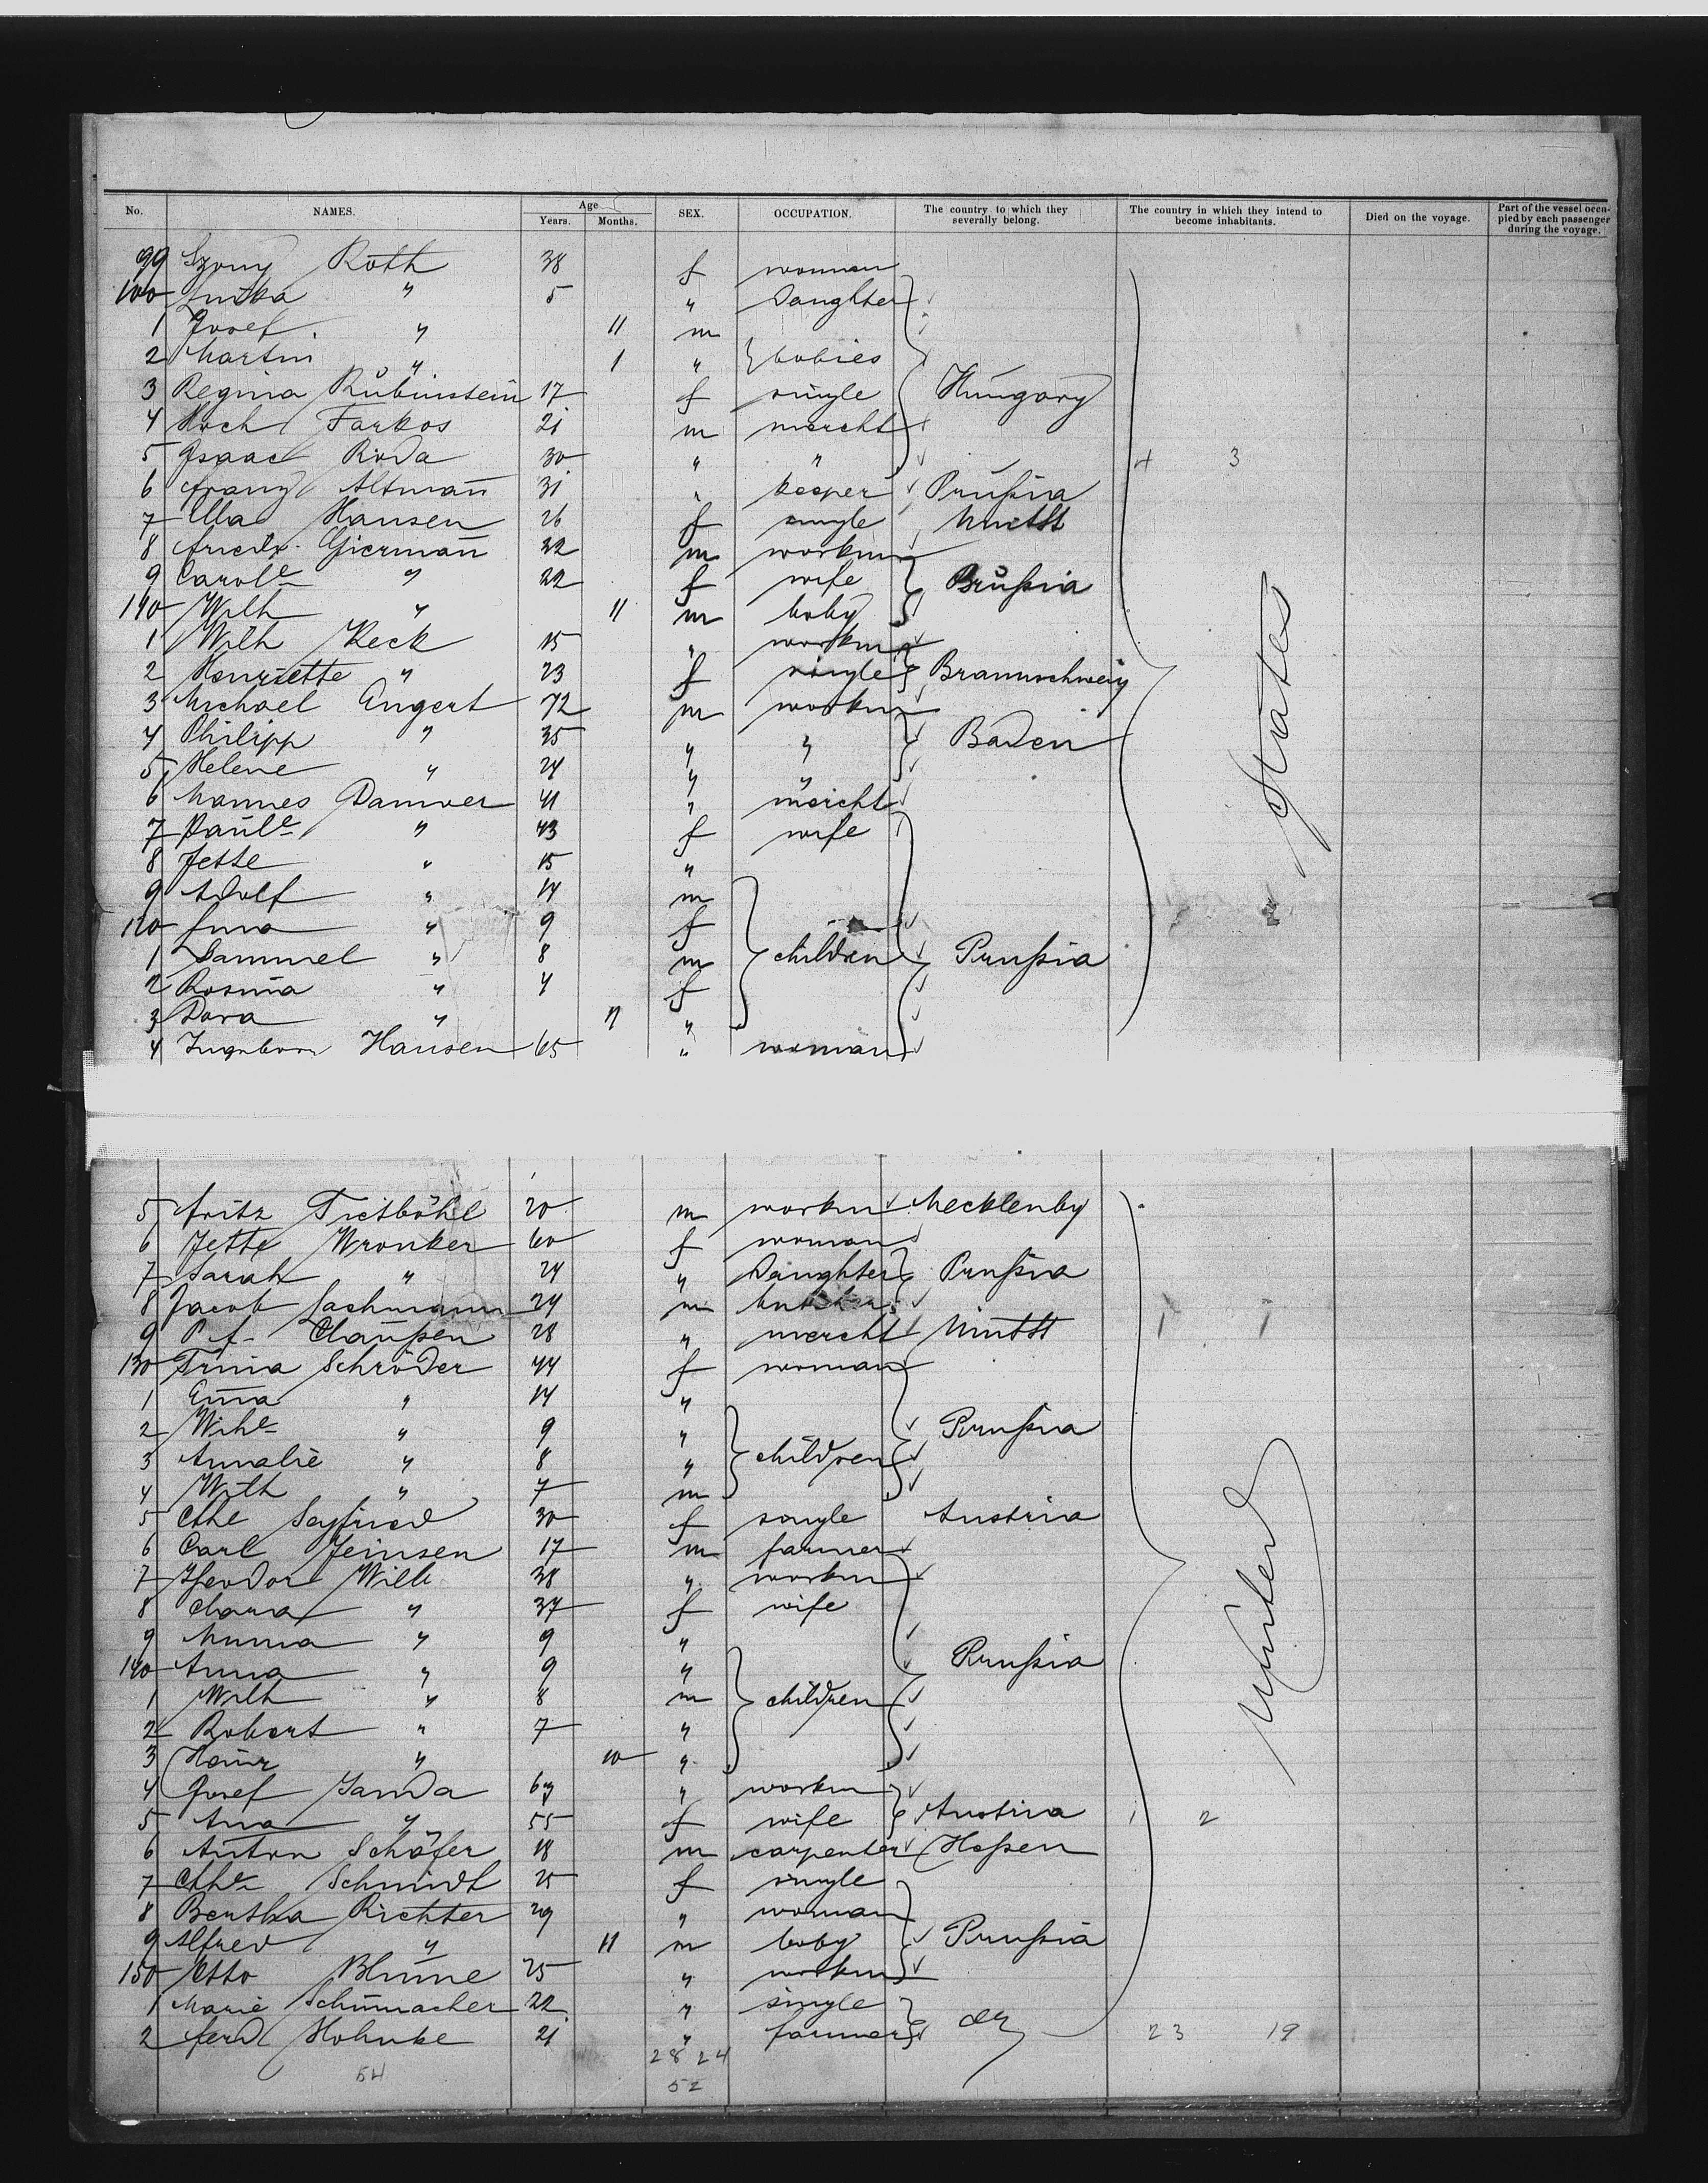 No. NAMES. Age Years. Months. SEX. OCCUPATION. The country to which they severally belong. The country in which they intend to become inhabitants. Died on the voyage. Part of the vessel occupied by each passenger during the voyage.
99 Szony Roth 38 f woman
100 " 5 " Daughter
1 Josef " 11 m
2 Martin " 1 " babies
3 Regina Rubinstein 17 f single Hungary
4 Farkos 21 m mercht
5 Isaac Roda 30 " " 4 3
6 Franz Altmañ 31 " keeper Prußia
7 Ella Hansen 26 f single
8 Friedr. Giermañ 22 m workm
9 Carole " 22 f wife Prußia
110 Wilh " 11 m baby
1 Wilh Keck 15 " workm
2 Henriette " 23 f single Braunschweig
3 Michael Angert 72 m workm
4 Philipp " 35 " " Baden
5 Helene " 24 " "
6 Mannes Danwer 41 " mercht States
7 Paule " 43 f wife
8 Jette " 15 "
9 Adolf " 14 m
120 " 9 f
1 Sammel " 8 m children Prußia
2 Rosina " 4 f
3 Dora " "
4 Ingeborn Hansen 65 " woman
5 Fritz Tietböhl 20 m workm Mecklenby
6 Jette Wronker 60 f woman
7 Sarah " 24 " Daughter Prußia
8 Jacob Lachmann 24 m
9 P. F. Claußen 28 " mercht 1 1
130 Trina Schröder 44 f woman
1 Em̄a " 14 "
2 Wihe " 9 " Prußia
3 Annalie " 8 " children
4 Wilh " 7 m
5 Cthe Seyfried 30 f single Austria
6 Carl Jeinsen 17 m farmer
7 Theodor Wille 38 " workm
8 Clara " 37 f wife United
9 " 9 "
140 Anna " 9 " Prußia
1 Wilh " 8 m children
2 Robert " 7 "
3 Heinr " 10 "
4 Josef Janda 63 " workm
5 Ana " 55 f wife Austria 1 2
6 Anton Schäfer 18 m carpenter Heßen
7 Cthe Schmidt 25 f single
8 Bertha Richter 29 " woman
9 Alfred " 11 m baby Prußia
150 Otto Blume 25 " workm
1 Marie Schumacher 22 " single
2 Ferd Hohnke 21 " farmer do 23 19
54 28 24
52